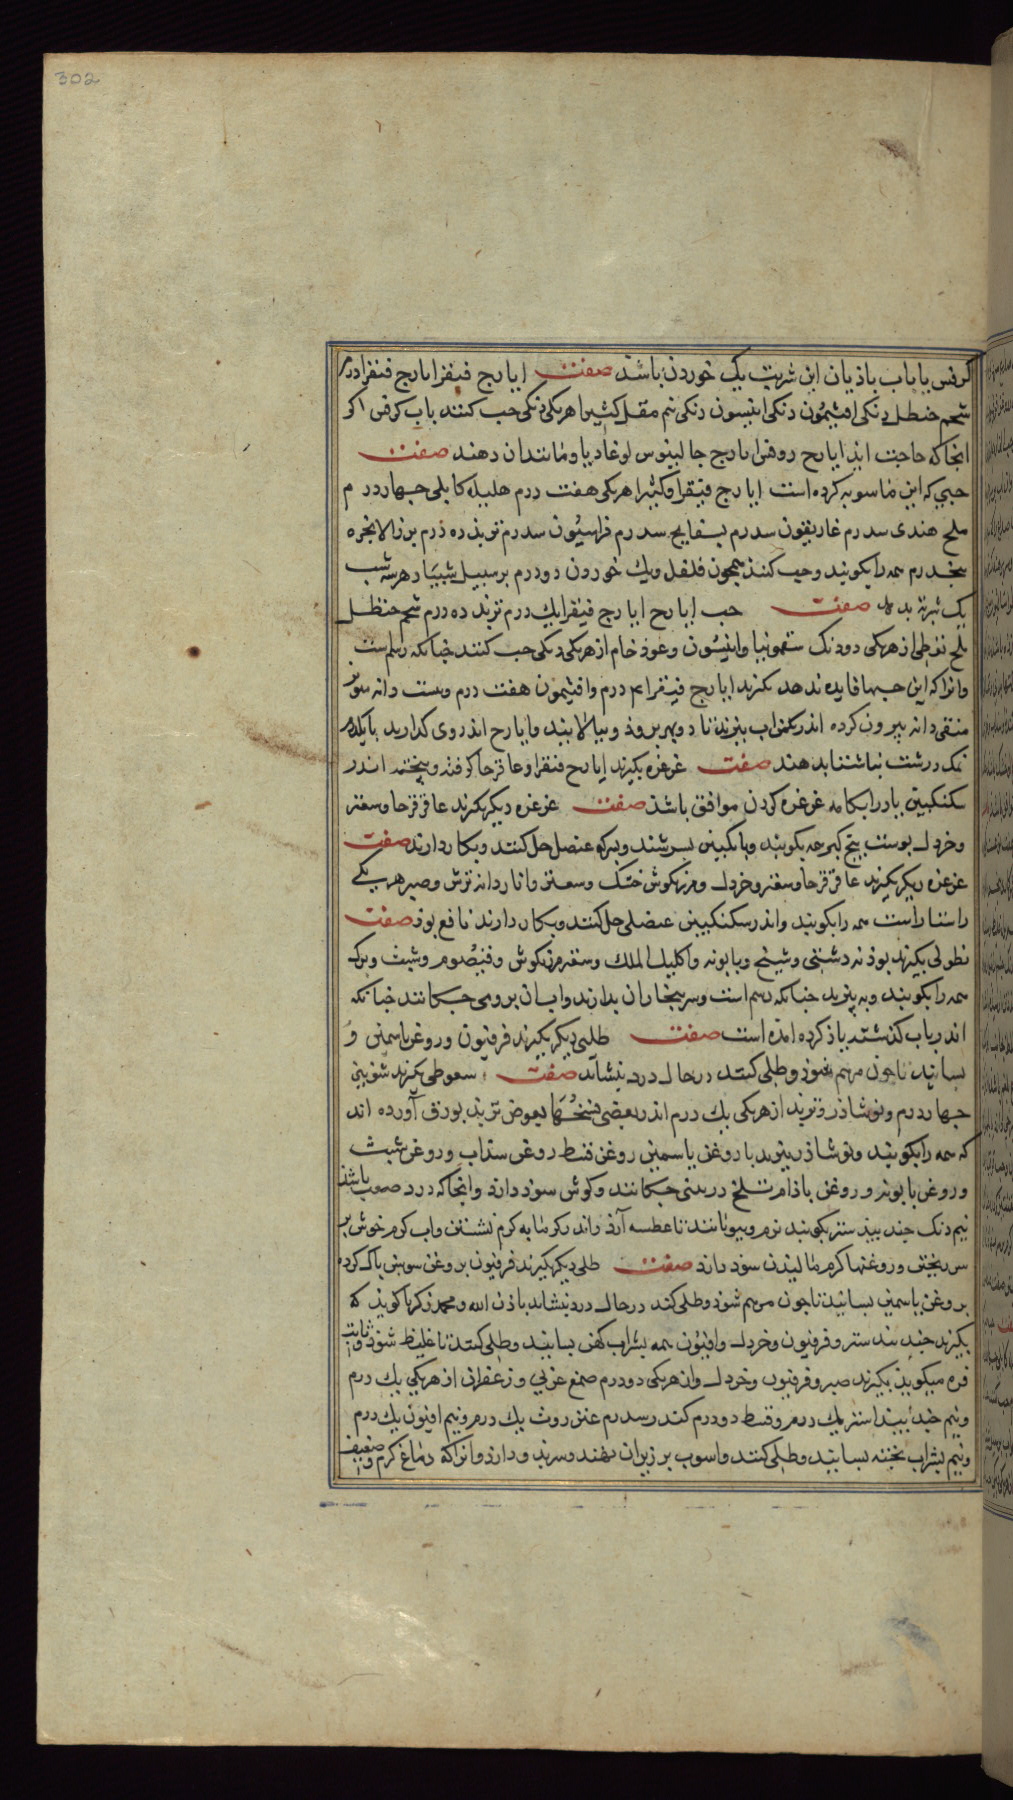 302
کرفس یا باب باذیان این شربت یک خوردن باشد صفت ایارج فیقرا ایارج فیقرا درم
شحم حنظل دنکی افتیمون دنکی انیسون دنکی نیم مقل کثیرا هریکی دنکی حب کنند باب کرفس اکر
انجا که حاجت ایذ ایارج روفس ایارج جالینوس لوغاذیا و مانند ان دهند صفت
حبی که ابن ماسویه کرده است ایارج فیقرا و کثیرا هریکی هفت درم هلیله کابلی جهار درم
ملح هندی سدرم غاریقون سدرم بسفایج سدرم فراسیون سدرم تربذ ده درم بزر الانجره
بنجدرم همه را بکوبند و حب کنند همجون فلفل و یک خوردن دو درم بر سبیل شبیار هر سه شب
یک شربة بدهد صفت حب ایارج ایارج فیقرا یک درم تربد ده درم شحم حنظل
ملح نفطی از هریکی دو دنک سقمونیا و انیسون و عود خام از هریکی دنکی حب کنند جنانکه رسم است
و انرا که این حبها فایده ندهد بکیرند ایارج فیقرا درم و افتیمون هفت درم و بیست دانه مویز
منقی دانه بیرون کرده اندر یکمن اب ببزند تا دو بهر برود و ببالایند و ایارح اندر وی کدارند با یکدرم
نمک درشت بناشتا بدهند صفت غرغره بکیرند ایارح فیقرا و عاقرحا کوفته و بیخته اندر
سکنکبین یا در ابکامه غرغره کردن موافق باشذ صفت غرغره دیکر بکیرند عاقرقرحا و سعتر
و خردل بوست بیخ کبر همه بکوبند و بانکبین بسرشند و بسرکه عنصل حل کنند و بکار دارند صفت
غرغره دیکر بکیرند عاقرقرحا و سعتر و خردل و مرزنکوش خشک و سعتر و انار دانه ترش و صبر هر یکی
راستاراست همه را بکوبند و اندر سکنکبین عنصلی حل کنند و بکار دارند نافع بوذ صفت
نطولی بکیرند بوذنه دشتی و شیح و بابونه و اکلیل الملک و سعتر مرزنکوش و قیصوم و شبت و برک
همه را بکوبند و به بزند جنانکه رسم است و سر ببخار ان بدارند و اب ان بر وی جکانند جنانکه
اندر باب کذشته یاذ کرده امذه است صفت طلی دیکر بکیرند فرفیون و روغن یاسمین و
بسایند تا جون مرهم شوذ و طلی کنند در حال درد بنشاند صفت سعوطی بکیرند شونیز
جهار درم و نوشاذر و تربد از هریکی یک درم اندر بعضی نسخها بعوض تربد بورق آورده اند
که همه را بکوبند و نوشاذر ببزند با روغن یاسمین روغن قسط روغن سداب و روغن شبت
و روغن بابونه و روغن باذام تلخ در بینی جکانند و کوش سوذ دارد و انجا که درد صعب باشذ
نیم دنک جند بیذستر بکوبند نرم و ببویانند تا عطسه آرذ و اندر کرمابه کرم نشستن و اب کرم خوش بر
سر ریختن و روغنها کرم مالیدن سوذ دارد صفت طلی دیکر بکیرند فرفیون بروغن سوسن باک کرده
بروغن یاسمین بسایند تا جون مرهم شوذ و طلی کنند در حال درد بنشاند باذن الله و محمد زکریا کوید که
بکیرند جند بیدستر و فرفیون و خردل و افیون همه بشراب کهن بسایند و طلی کنند تا غلیظ شوذ و ثابت
قره میکوید بکیرند صبر و فرفیون و خردل و از هریکی دو درم صمغ عربی و زعفران از هریکی یک درم
و نیم جند بیذاستر یک درم و قسط دو درم کندر سدرم عنزروت یک درم و نیم افیون یک درم
و نیم بشراب بخته بسایند و طلی کنند و اسوب بر زبران نهند و سر بند و دارذ و انرا که دماغ کرم و ضعیف